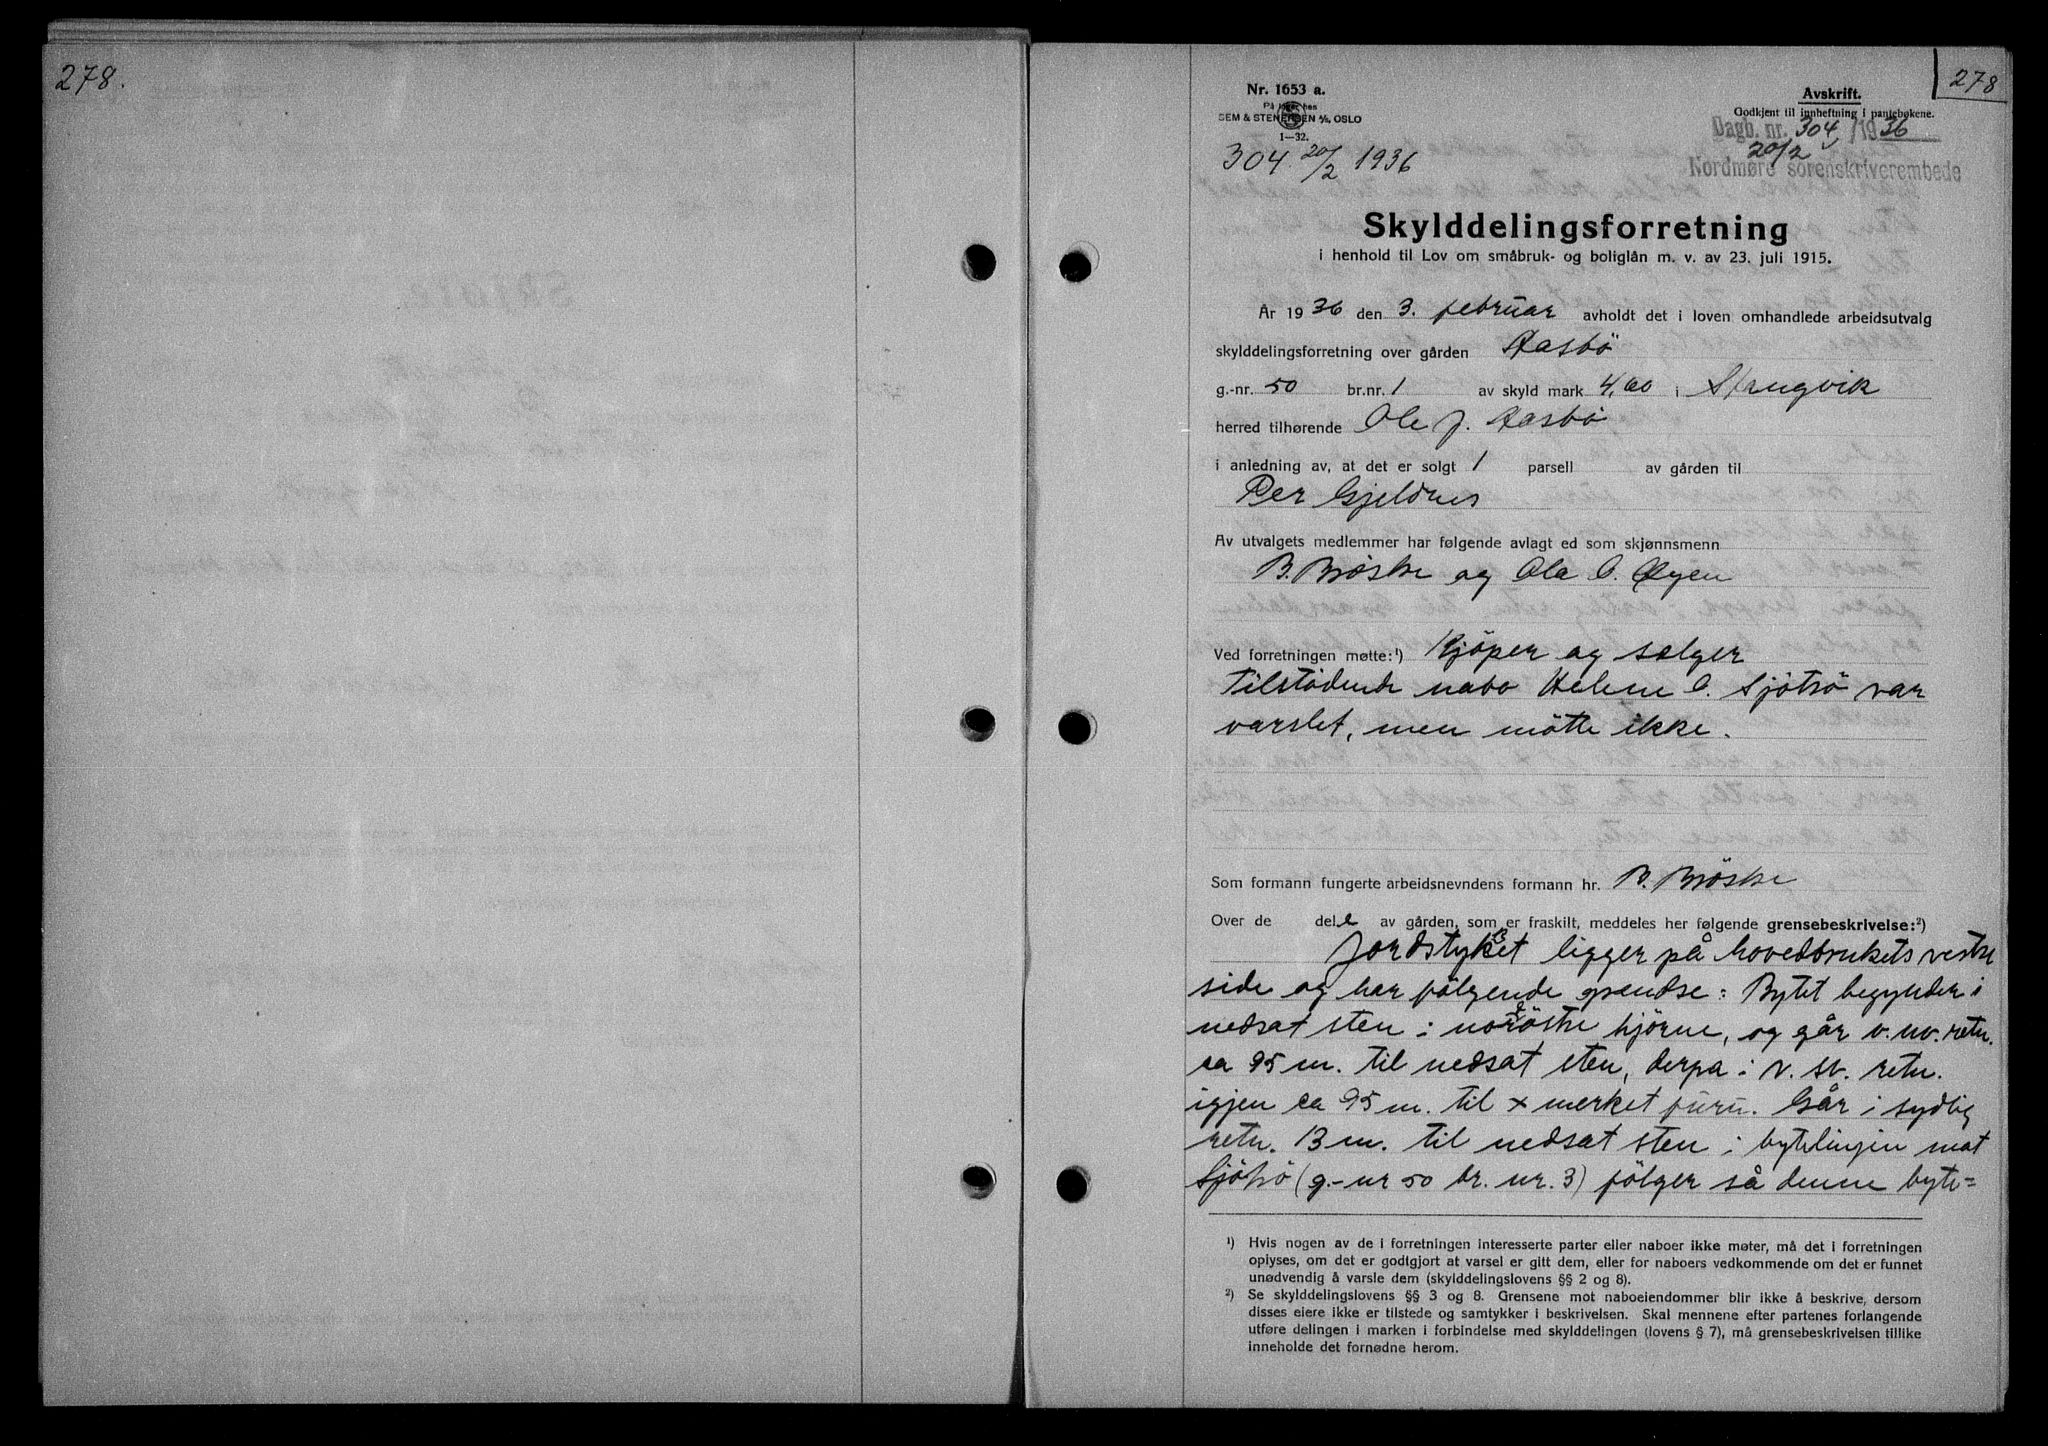 278.
278
Nr. 1653 a.
På lager hos
SEM & STENERSEN A/S, OSLO
1—32.
304 20/2 1936
Avskrift.
Godkjent til innheftning i pantebøkene.
Dagb. nr. 304 / 1936
20/2
Nordmøre sorenskriverembede
Skylddelingsforretning
i henhold til Lov om småbruk- og boliglån m. v. av 23. juli 1915.
År 1936 den 3. februar avholdt det i loven omhandlede arbeidsutvalg
skylddelingsforretning over gården Aasbö
g.-nr. 50 br.nr. 1 av skyld mark 4,60 i Stangvik
herred tilhørende Ole J. Aasbö
i anledning av, at det er solgt 1 parsell av gården til
Per Gjeldnes
Av utvalgets medlemmer har følgende avlagt ed som skjønnsmenn
B. Bröske og Ola O. Øyen
Ved forretningen møtte:¹) Kjöper og selger
Tilstödende nabo Helene O. Sjötrö var
varslet, men mötte ikke.
Som formann fungerte arbeidsnevndens formann hr. B. Bröske
Over de dele av gården, som er fraskilt, meddeles her følgende grensebeskrivelse:²)
Jordstyket ligger på hovedbrukets vestre
side og har fölgende grendse: Bytet begynder i
nedsat sten i nordöstre hjörne, og går v. nv. retn.
ca 95 m. til nedsat sten, derpa i v. sv. retn.
igjen ca 95 m. til x merket furu. Går i sydlig
retn. 13 m. til nedsat sten i bytelinjen mot
Sjötrö (g.-nr 50 br. nr. 3) fölger så denne byte=
¹) Hvis nogen av de i forretningen interesserte parter eller naboer ikke møter, må det i forretningen
oplyses, om det er godtgjort at varsel er gitt dem, eller for naboers vedkommende om det er funnet
unødvendig å varsle dem (skylddelingslovens §§ 2 og 8).
²) Se skylddelingslovens §§ 3 og 8. Grensene mot naboeiendommer blir ikke å beskrive, dersom
disses eiere ikke er tilstede og samtykker i beskrivelsen. Skal mennene efter partenes forlangende
utføre delingen i marken i forbindelse med skylddelingen (lovens § 7), må grensebeskrivelsen tillike
inneholde det fornødne herom.